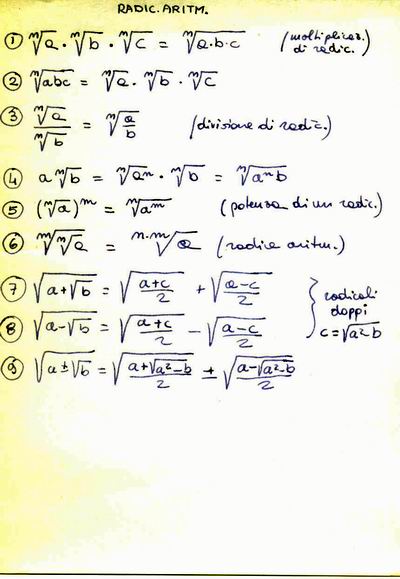 RADIC. ARITM.
① ⁿ√a · ⁿ√b · ⁿ√c = ⁿ√a·b·c (moltiplicaz. di radic.)
② ⁿ√abc = ⁿ√a · ⁿ√b · ⁿ√c
③ ⁿ√a / ⁿ√b = ⁿ√(a/b) (divisione di radic.)
④ a ⁿ√b = ⁿ√aⁿ · ⁿ√b = ⁿ√aⁿb
⑤ (ⁿ√a)ᵐ = ⁿ√aᵐ (potenza di un radic.)
⑥ ᵐ√ⁿ√a = ⁿ·ᵐ√a (radice aritm.)
⑦ √(a+√b) = √((a+c)/2) + √((a-c)/2) } radicali doppi
⑧ √(a-√b) = √((a+c)/2) - √((a-c)/2) c=√(a²-b)
⑨ √(a±√b) = √((a+√(a²-b))/2) ± √((a-√(a²-b))/2)